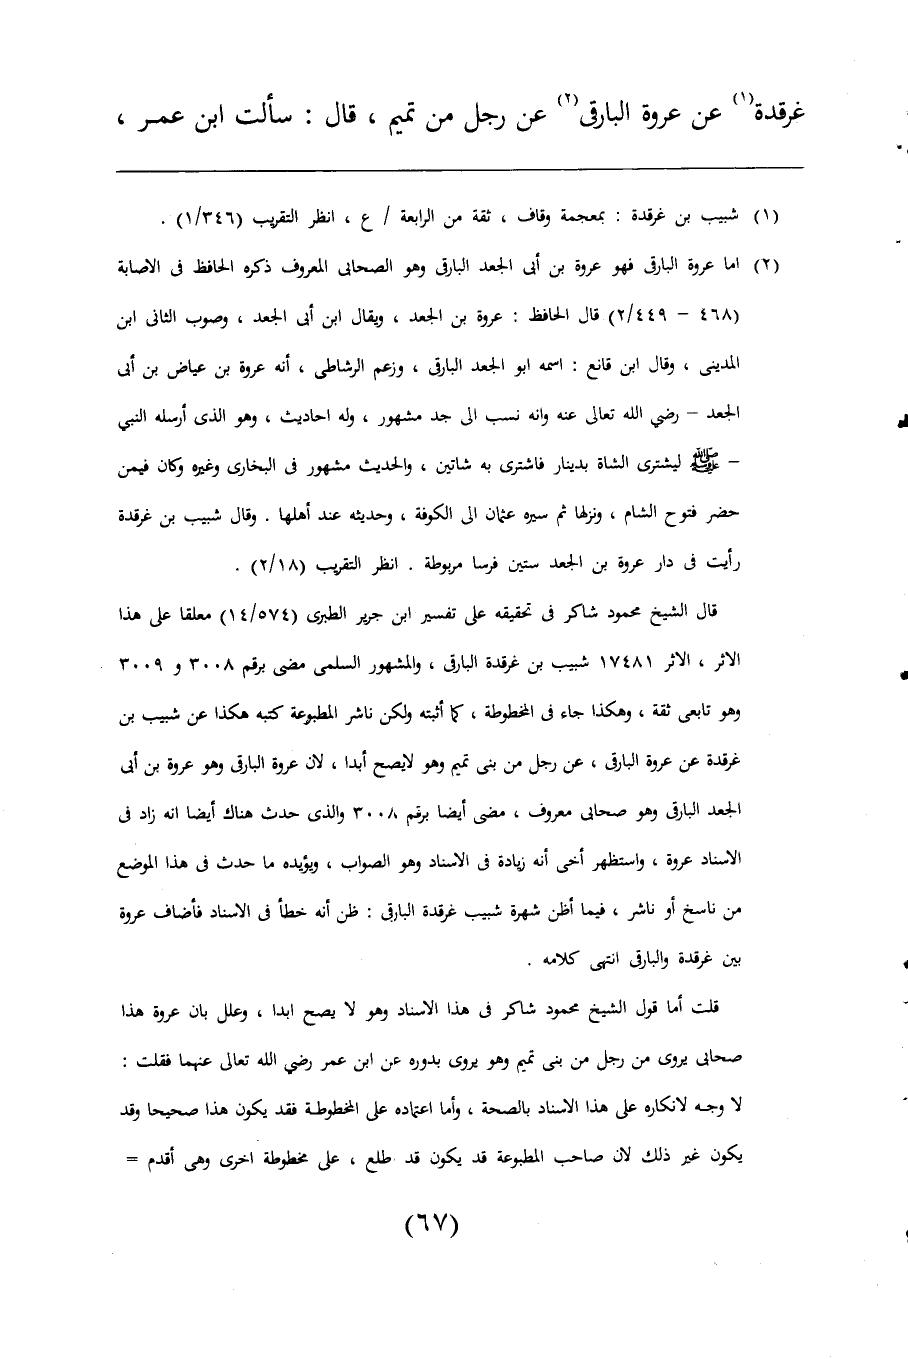 غرقدة(١) عن عروة البارقى(٢) عن رجل من تميم ، قال : سألت ابن عمـر ،
(١) شبيب بن غرقدة : بمعجمة وقاف ، ثقة من الرابعة / ع ، انظر التقريب (١/٣٤٦) .
(٢) اما عروة البارقى فهو عروة بن أبى الجعد البارقى وهو الصحابى المعروف ذكره الحافظ فى الاصابة
(٤٦٨ – ٢/٤٤٩) قال الحافظ : عروة بن الجعد ، ويقال ابن أبى الجعد ، وصوب الثانى ابن
المدينى ، وقال ابن قانع : اسمه ابو الجعد البارقى ، وزعم الرشاطى ، أنه عروة بن عياض بن أبى
الجعد – رضي الله تعالى عنه وانه نسب الى جد مشهور ، وله احاديث ، وهو الذى أرسله النبي
– ﷺ ليشترى الشاة بدينار فاشترى به شاتين ، والحديث مشهور فى البخارى وغيره وكان فيمن
حضر فتوح الشام ، ونزلها ثم سيره عثمان الى الكوفة ، وحديثه عند أهلها . وقال شبيب بن غرقدة
رأيت فى دار عروة بن الجعد ستين فرسا مربوطة . انظر التقريب (٢/١٨) .
قال الشيخ محمود شاكر فى تحقيقه على تفسير ابن جرير الطبرى (١٤/٥٧٤) معلقا على هذا
الاثر ، الاثر ١٧٤٨١ شبيب بن غرقدة البارقى ، والمشهور السلمى مضى برقم ٣٠٠٨ و ٣٠٠٩
وهو تابعى ثقة ، وهكذا جاء فى المخطوطة ، كما أثبته ولكن ناشر المطبوعة كتبه هكذا عن شبيب بن
غرقدة عن عروة البارقى ، عن رجل من بنى تميم وهو لايصح أبدا ، لان عروة البارقى وهو عروة بن أبى
الجعد البارقى وهو صحابى معروف ، مضى أيضا برقم ٣٠٠٨ والذى حدث هناك أيضا انه زاد فى
الاسناد عروة ، واستظهر أخى أنه زيادة فى الاسناد وهو الصواب ، ويؤيده ما حدث فى هذا الموضع
من ناسخ أو ناشر ، فيما أظن شهرة شبيب غرقدة البارقى : ظن أنه خطأ فى الاسناد فأضاف عروة
بين غرقدة والبارقى انتهى كلامه .
قلت أما قول الشيخ محمود شاكر فى هذا الاسناد وهو لا يصح ابدا ، وعلل بان عروة هذا
صحابى يروى من رجل من بنى تميم وهو يروى بدوره عن ابن عمر رضي الله تعالى عنهما فقلت :
لا وجـه لانكاره على هذا الاسناد بالصحة ، وأما اعتماده على المخطوطـة فقد يكون هذا صحيحا وقد
يكون غير ذلك لان صاحب المطبوعة قد يكون قد طلع ، على مخطوطة اخرى وهى أقدم =
(٦٧)